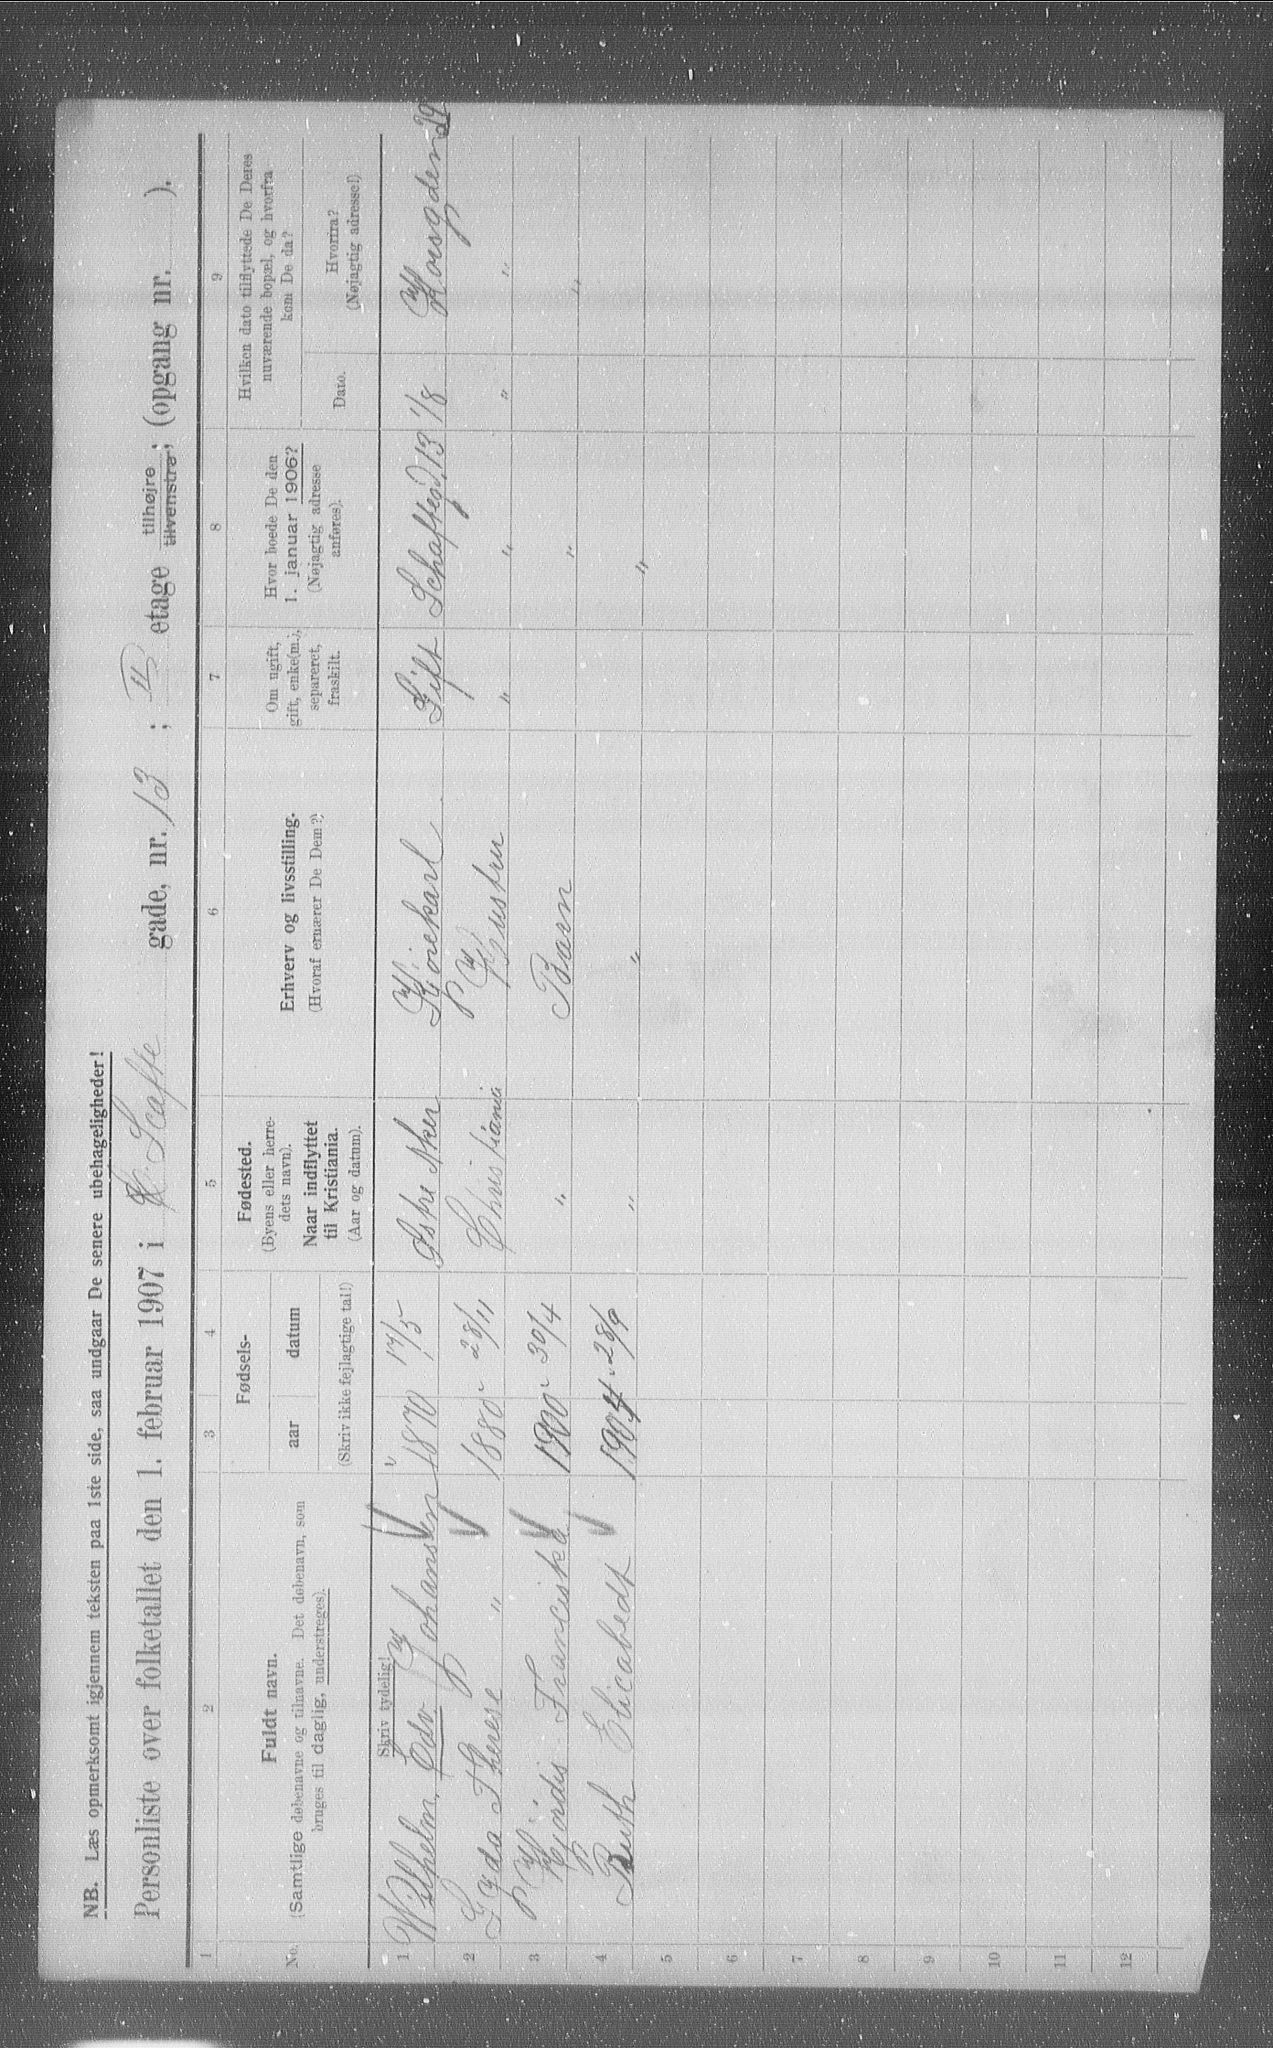 NB. Læs opmerksomt igjennem teksten paa 1ste side, saa undgaar De senere ubehageligheder!
Personliste over folketallet den 1. februar 1907 i Scaffe gade, nr. 13; II etage tilhøjre tilvenstre; (opgang nr. ).
1 2 3 4 5 6 7 8 9
No.
Fuldt navn.
(Samtlige døbenavne og tilnavne. Det døbenavn, som
bruges til daglig, understreges).
Fødsels-
aar datum
(Skriv ikke fejlagtige tal!)
Fødested.
(Byens eller herre-
dets navn).
Naar indflyttet
til Kristiania.
(Aar og datum).
Erhverv og livsstilling.
(Hvoraf ernærer De Dem?)
Om ugift,
gift, enke(m.),
separeret,
fraskilt.
Hvor boede De den
1. januar 1906?
(Nøjagtig adresse
anføres).
Hvilken dato tilflyttede De Deres
nuværende bopæl, og hvorfra
kom De da?
Dato.
Hvorfra?
(Nøjagtig adresse!)
Skriv tydelig!
1 Wilhelm, Edv Johansen 1870 17/5 Østre Aker Kjørekarl Gift Schaffegd 13 1/8 29
2 Therese " 1880 28/11 Christiania Hustru " " " "
3 Hjørdis Franciska 1900 30/4 " Barn " "
4 Ruth Elicabedt 1904 28/9 " " "
5
6
7
8
9
10
11
12